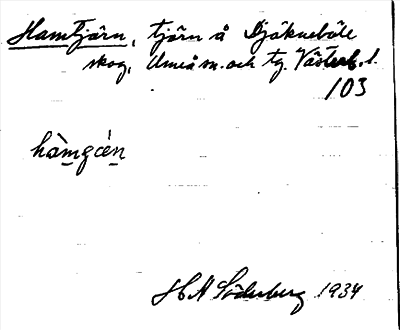 Hamtjärn, tjärn å Djäkneböle
skog, Umeå sn. och tg. Västerb. l.
103
hàmgɛ́n
H A Söderberg 1934